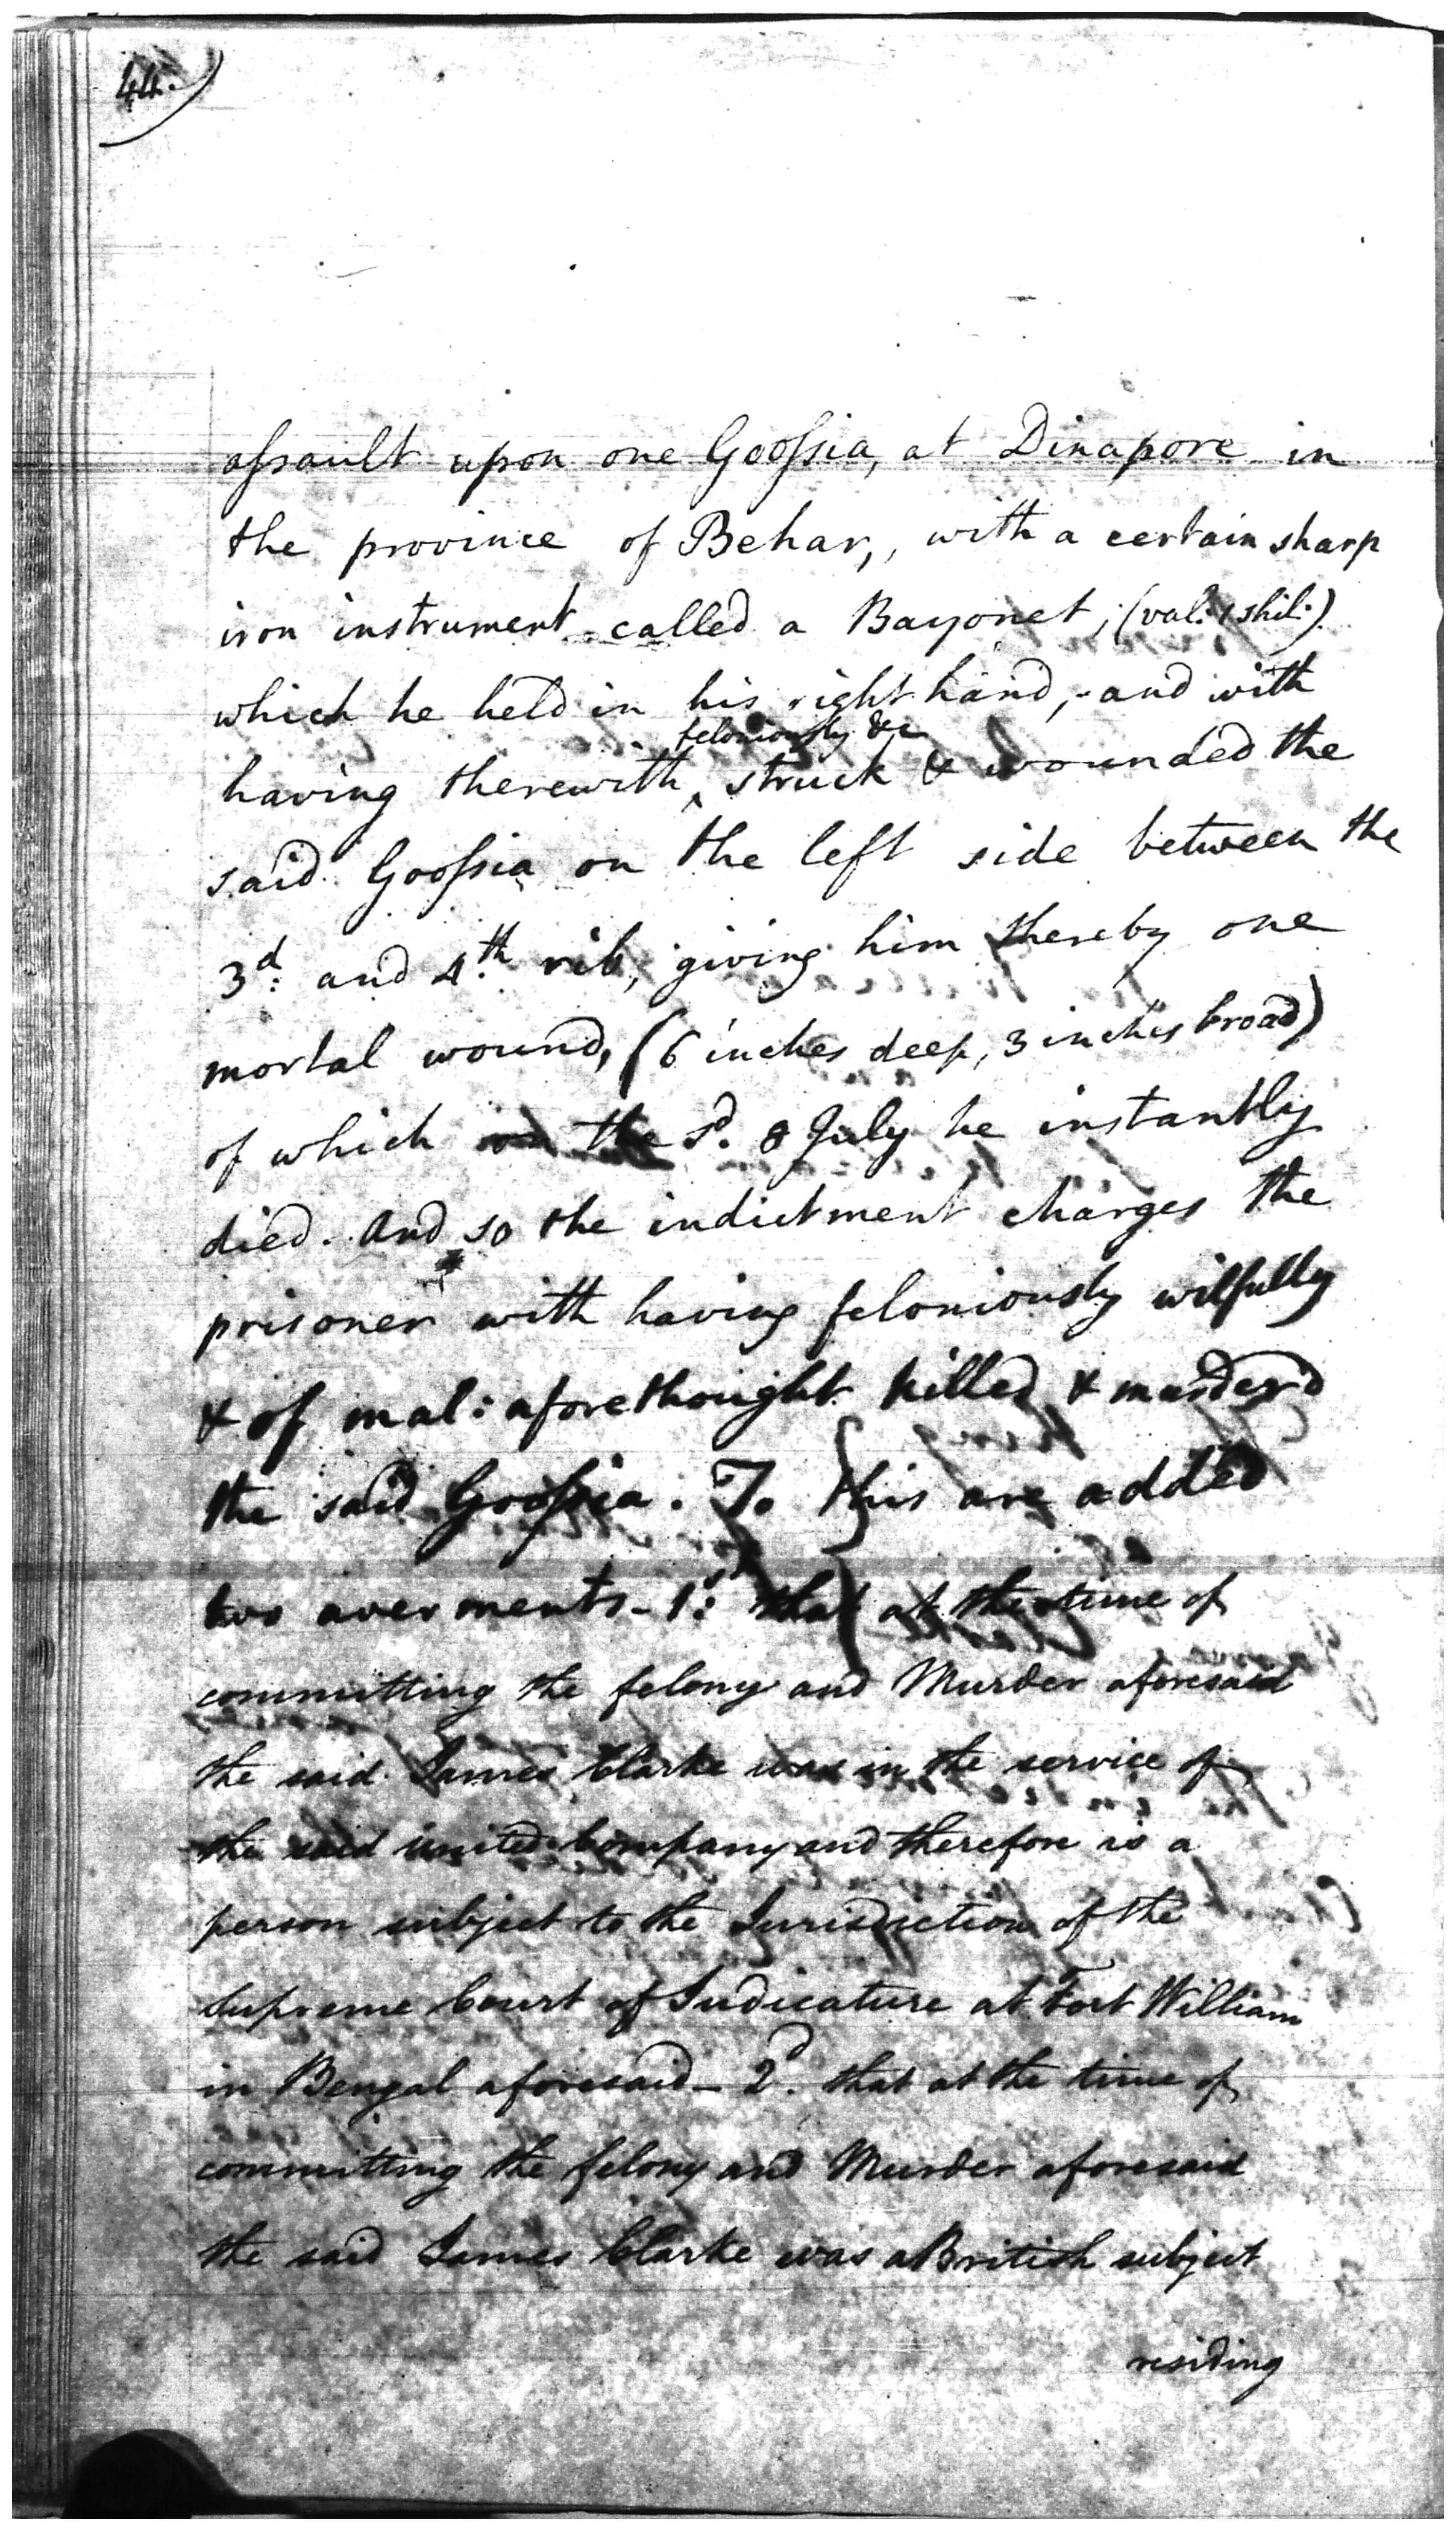 44.
aſsault upon one Gooſsia, at Dinapore in
the province of Behar,, with a certain sharp
iron instrument called a Bayonet; (val: 1 shil:)
which he held in his right hand, and with
feloniously &c
having therewith ‸ struck & wounded the
said Gooſsia on the left side between the
3d: and 4th. rib, giving him thereby one
mortal wound, (6 inches deep, 3 inches broad)
of which on the sd. 8 July he instantly
died. And so the indictment charges the
prisoner with having feloniously wilfully
& of mal: aforethought killed & murder'd
the said Gooſsia. To this are added
two averments - 1st: that at the time of
committing the felony and Murder aforesaid
the said James Clarke was in the service of
the said united Company and therefore is a
person subject to the Jurisdiction of the
Supreme Court of Judicature at Fort William
in Bengal aforesaid - 2d. that at the time of
committing the felony and Murder aforesaid
the said James Clarke was a British subject
residing